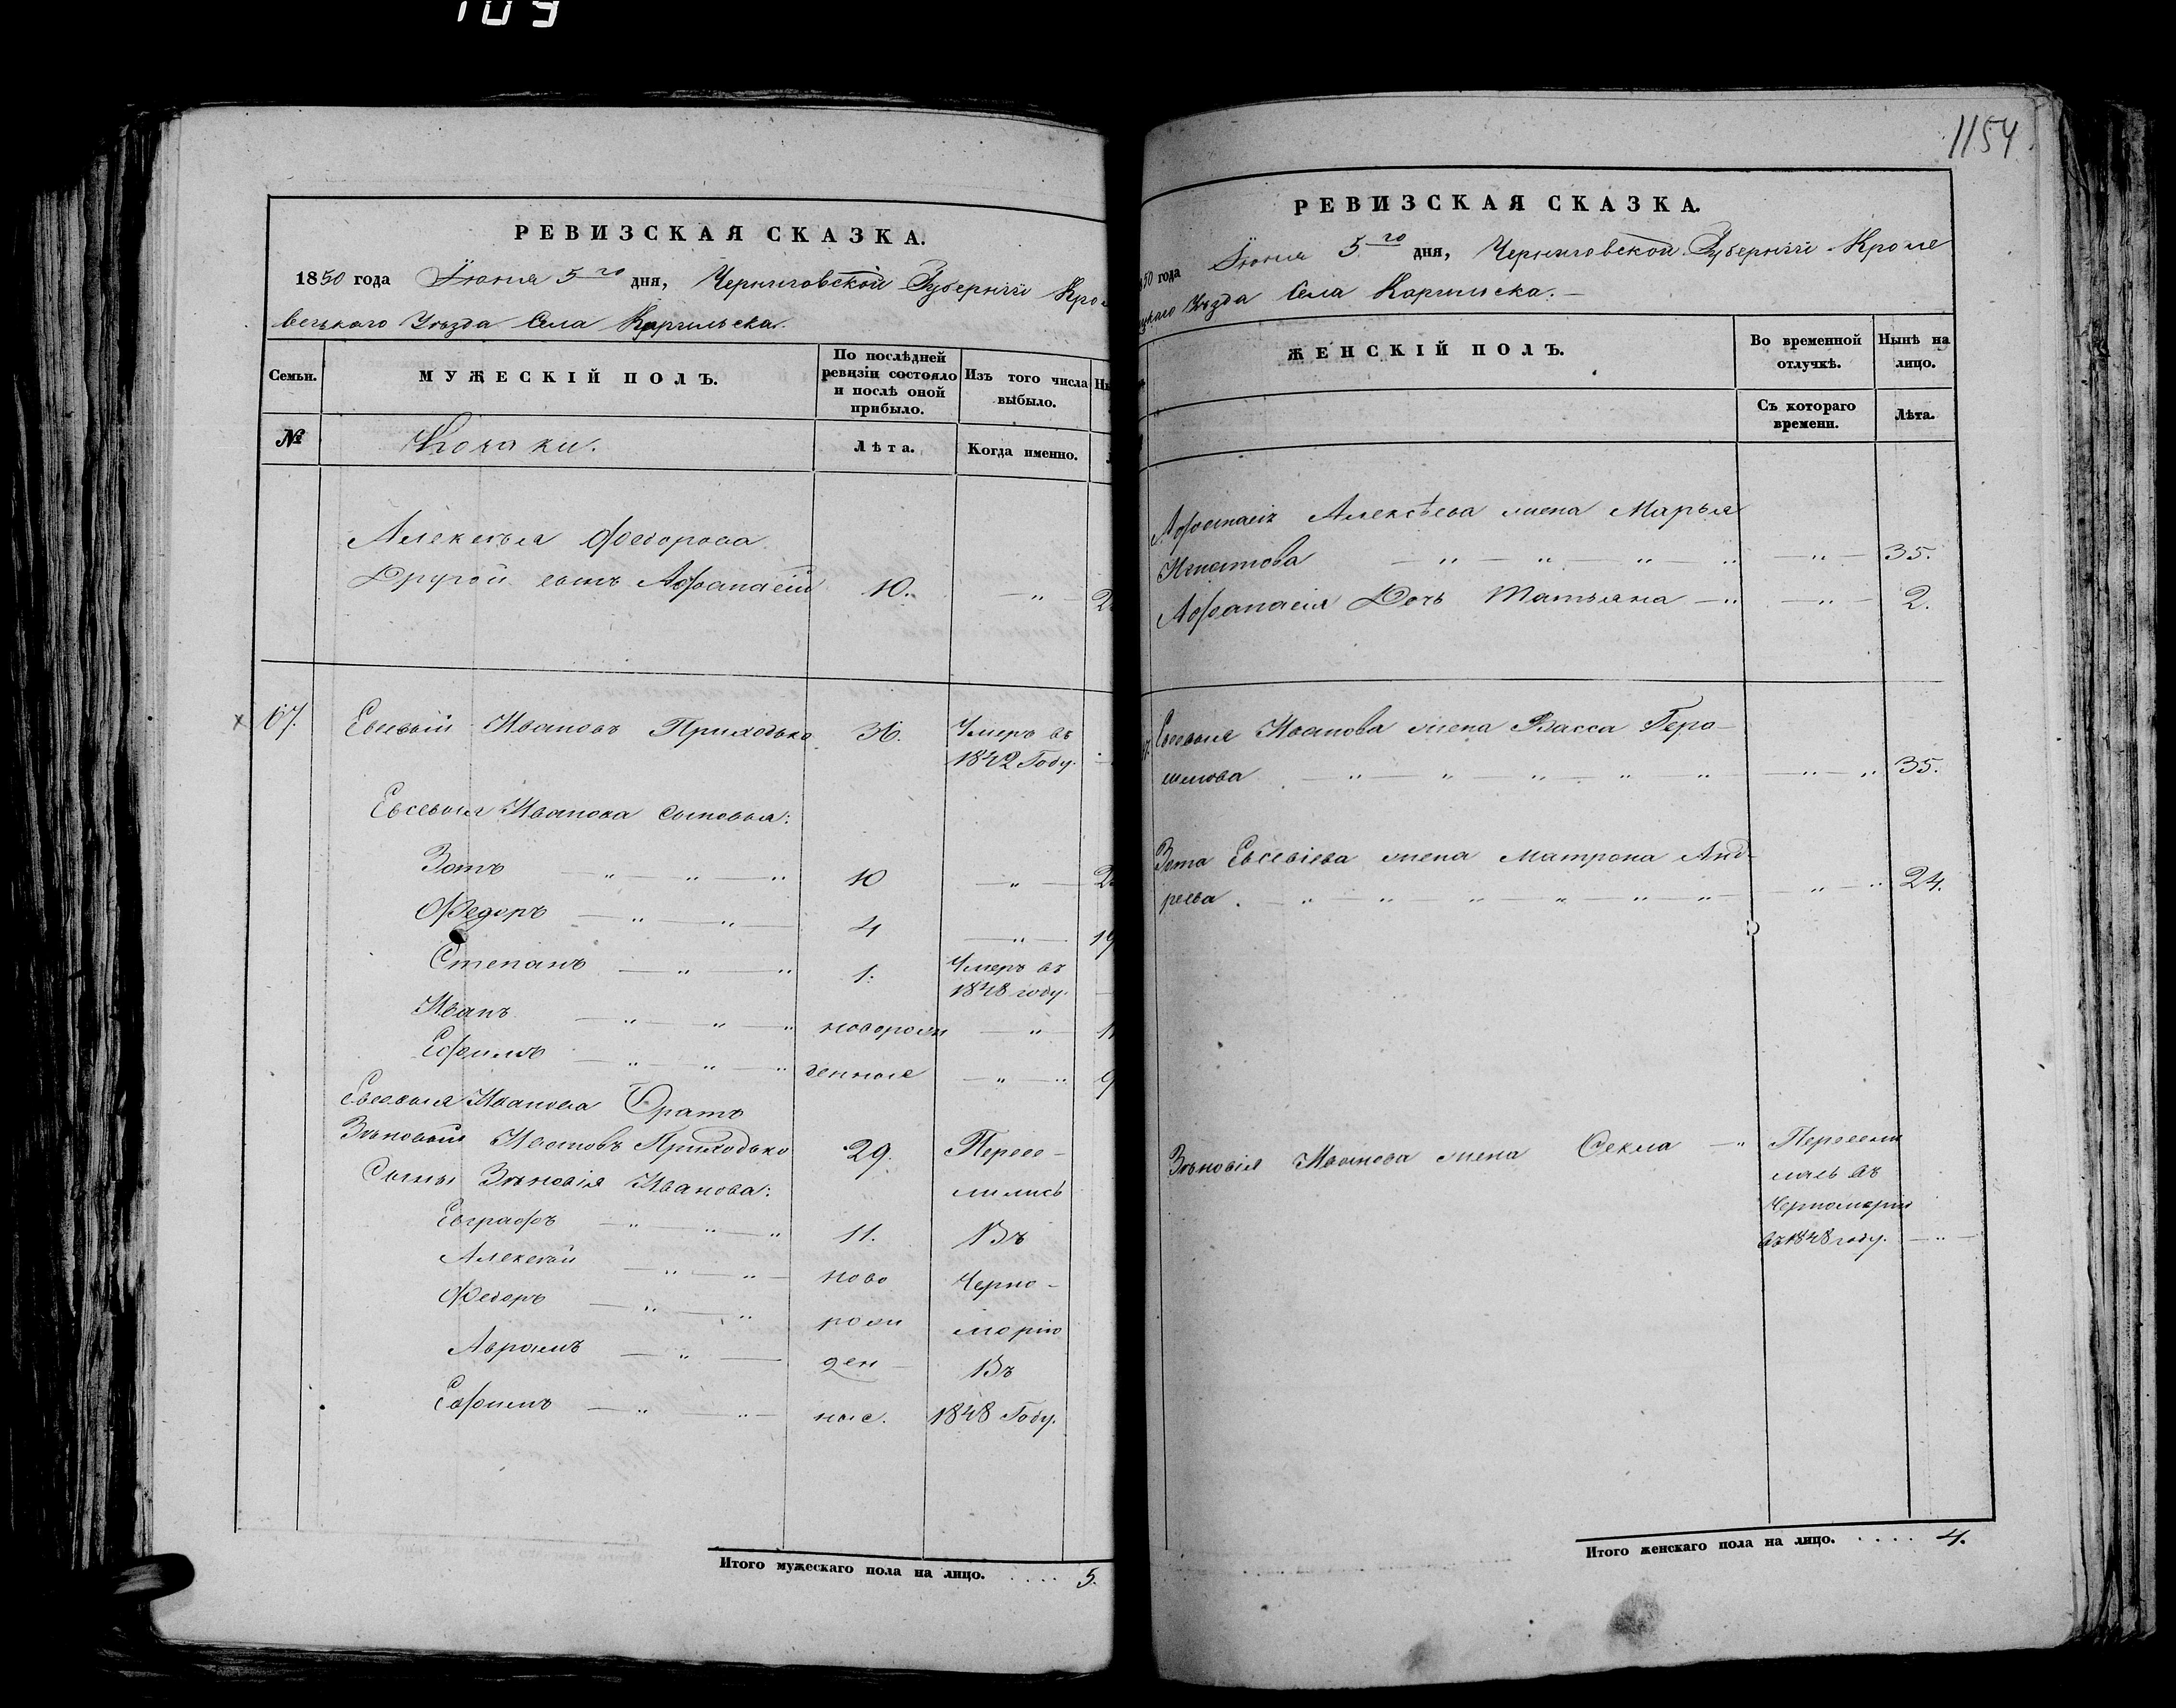 109
РЕВИЗСКАЯ СКАЗКА.
1850 года Іюня 5го дня, Черниговской Губерніи Кро
вецкаго Уѣзда Села Каргильска.
Семьи.
МУЖЕСКІЙ ПОЛЪ.
По послѣдней ревизіи состояло и послѣ оной прибыло.
Изъ того числа выбыло.
№
Козаки.
Лѣта.
Когда именно.
Алексѣя Федорова
Другой сынъ Афанасій 10. — „ — 2
67. Евсевій Ивановъ Приходько 36. Умеръ въ
1842 Году.
Евсевія Иванова сыновья:
Зотъ — „ — „ — „ 10 — „ — 2
Федоръ — „ — „ — 4 — „ — 19
Степанъ — „ — „ 1. Умеръ въ
1848 году.
Иванъ — „ — „ — „ новорож — „ — 1
Ефимъ — „ — „ — „ денные — „ — „ 9
Евсевія Иванова Братъ
Зѣновій Ивановъ Приходько 29. Пересе-
Сыны Зѣновія Иванова: лились
Евграфъ — „ — „ — „ 11. Въ
Алексѣй — „ — „ — ново Черно-
Федоръ — „ — „ рож морію
Аврамъ — „ — ден- Въ
Ефимъ — „ — „ — ные. 1848 Году.
Итого мужескаго пола на лицо. .... 5.
1154
РЕВИЗСКАЯ СКАЗКА.
50 года Іюня 5го дня, Черниговской Губерніи Кроле
ецкаго Уѣзда Села Каргильска. —
ЖЕНСКІЙ ПОЛЪ.
Во временной отлучкѣ.
Нынѣ на лицо.
Съ котораго времени.
Лѣта.
Афанасія Алексѣева жена Марья
Игнатова — „ — „ — „ — „ — „ — 35.
Афанасія Дочь Татьяна — „ — „ — 2.
Евсевія Иванова жена Васса Гера-
симова — „ — „ „ — „ — „ — „ — „ 35.
Зота Евсевіева жена Матрона Анд-
реева. — „ — „ — „ — „ — „ — „ — „ — „ 24.
Зѣновія Иванова жена Фекла — „ Пересели
лась въ
Черноморію
въ 1848 году. — „ —
Итого женскаго пола на лицо. .... 4.